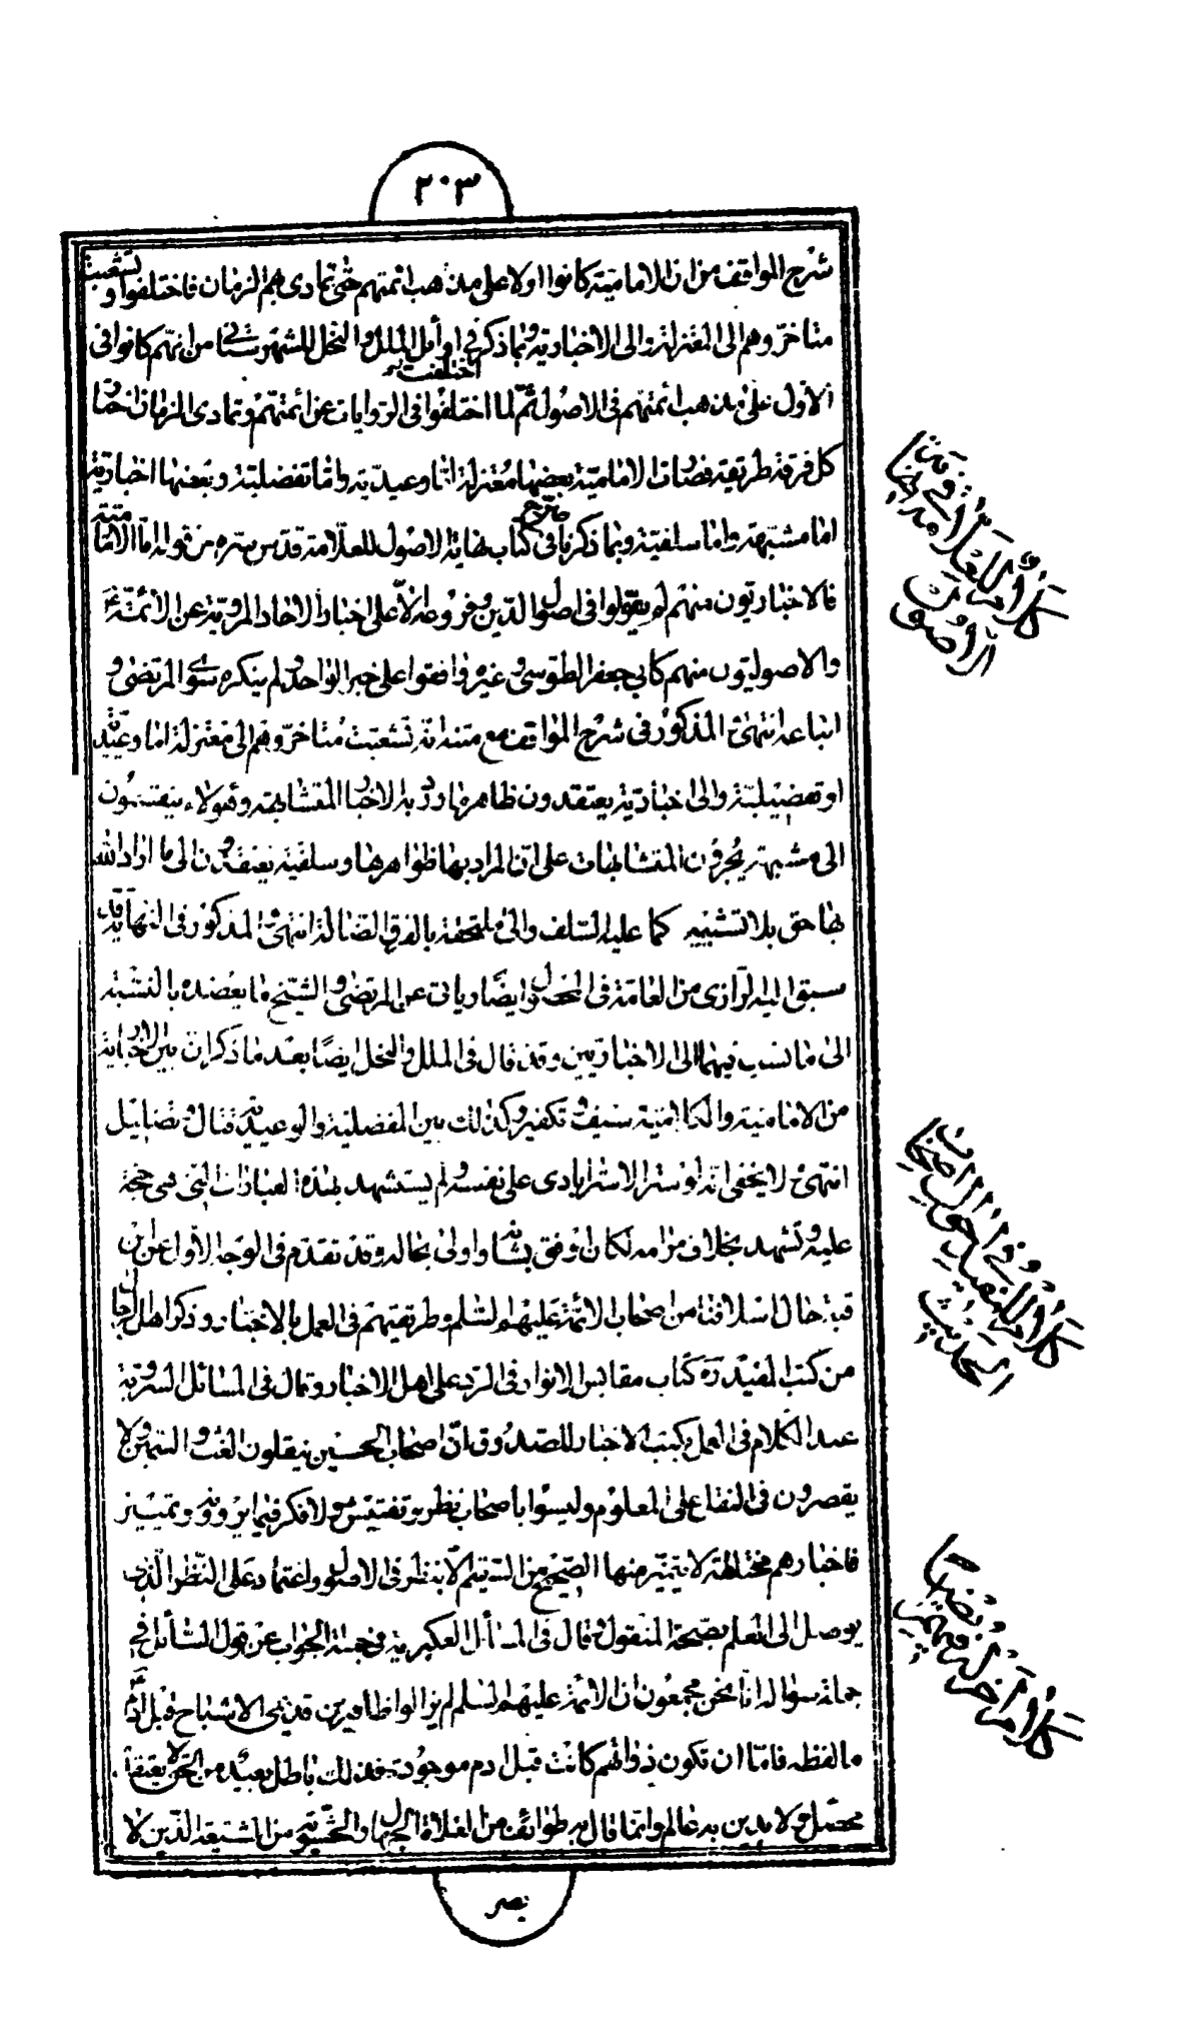 ٢٠٣
شرح المواقف من ان الامامية كانوا اولا على مذهب ائمتهم حتى تمادى بهم الزمان فاختلفوا و تشعبت
متاخروهم الى المعتزلة والى الاخبارية وبما ذكر في اوائل الملل والنحل للشهرستاني من انهم كانوا في
الاول على مذهب ائمتهم في الاصول ثم لما اختلفوا في الروايات عن ائمتهم وتمادى الزمان اختارت
كل فرقة طريقة فصارت الامامية بعضها معتزلة اما وعيدية واما تفضيلية وبعضها اخبارية
اما مشبهة واما سلفية وبما ذكر في كتاب نهاية الاصول للعلامة قدس سره من قوله اما الامامية
فالاخباريون منهم لم يقولوا في اصول الدين وفروعه الا على اخبار الاحاد المروية عن الائمة ع
والاصوليون منهم كابي جعفر الطوسي وغيره وافقوا على خبر الواحد ولم ينكره سوى المرتضى و
اتباعه انتهى والمذكور في شرح المواقف مع متنه انه تشعبت متاخروهم الى معتزلة اما وعيدية
او تفضيلية والى اخبارية يعتقدون ظاهر ما ورد به الاخبار المتشابهة وهؤلاء ينقسمون
الى مشبهة يجرون المتشابهات على ان المراد بها ظواهرها وسلفية يعتقدون الى ما اراد الله
بها حق بلا تشبيه كما عليه السلف والى ملتحقة بالفرق الضالة انتهى والمذكور في النهاية قد
سبق اليه الرازي من العامة في المحصول وايضا وياتى عن المرتضى والشيخ ما يعضده بالنسبة
الى ما نسب فيهما الى الاخباريين وقد قال في الملل والنحل ايضا بعد ما ذكر ان بين الاخبارية
من الامامية والكلامية سيف وتكفير وكذلك بين المفضلية والوعيدية قتال وتضليل
انتهى ولا يخفى انه لو ستر الاسترابادى على نفسه ولم يستشهد بهذه العبارات التى هى حجة
عليه وتشهد بخلاف مرامه لكان اوفق بشانه واولى بحاله وقد تقدم في الوجه الاول عن ابن
قبة حال اسلافنا من اصحاب الائمة عليهم السلم وطريقتهم في العمل بالاخبار وذكر اهل الرجال
من كتب المفيد ره كتاب مقابس الانوار في الرد على اهل الاخبار وقال في المسائل السروية
عند الكلام في العمل بكتب الاخبار للصدوق ان اصحاب الحديث ينقلون الغث والسمين ولا
يقصرون في النقل على المعلوم وليسوا باصحاب نظر وتفتيش ولا فكر فيما يروونه وتمييز
فاخبارهم مختلطة لا يتميز منها الصحيح من السقيم الا بنظر في الاصول واعتماد على النظر الذى
يوصل الى العلم بصحة المنقول وقال في المسائل العكبرية في جملة الجواب عن قول السائل في
جملة سؤاله انا نحن مجمعون ان الائمة عليهم السلم لم يزالوا ظاهرين قديمى الاشباح قبل آدم
ما لفظه فاما ان تكون ذواتهم كانت قبل ادم موجودة فذلك باطل بعيد من الحق لا يعتقده
محصل ولا يدين به عالم وانما قال به طوائف من الغلاة الجهال والحشوية من الشيعة الذين لا
بصر
كلام للعلامة في نهاية
الاصول
كلام للمفيد في اصحاب
الحديث
كلام آخر له فيهم ايضا